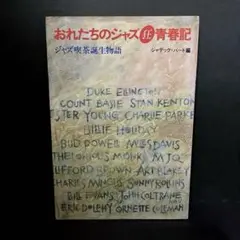 おれたちのジャズ狂青春記
ジャズ喫茶誕生物語
ジャテック・ハート編
DUKE ELLINGTON
COUNT BASIE STAN KENTON
LESTER YOUNG CHARLIE PARKER
BILLIE HOLIDAY
BUD POWELL MILES DAVIS
THELONIOUS MONK M.J.Q.
CLIFFORD BROWN ART BLAKEY
CHARLES MINGUS SONNY ROLLINS
BILL EVANS JOHN COLTRANE
ERIC DOLPHY ORNETTE COLEMAN